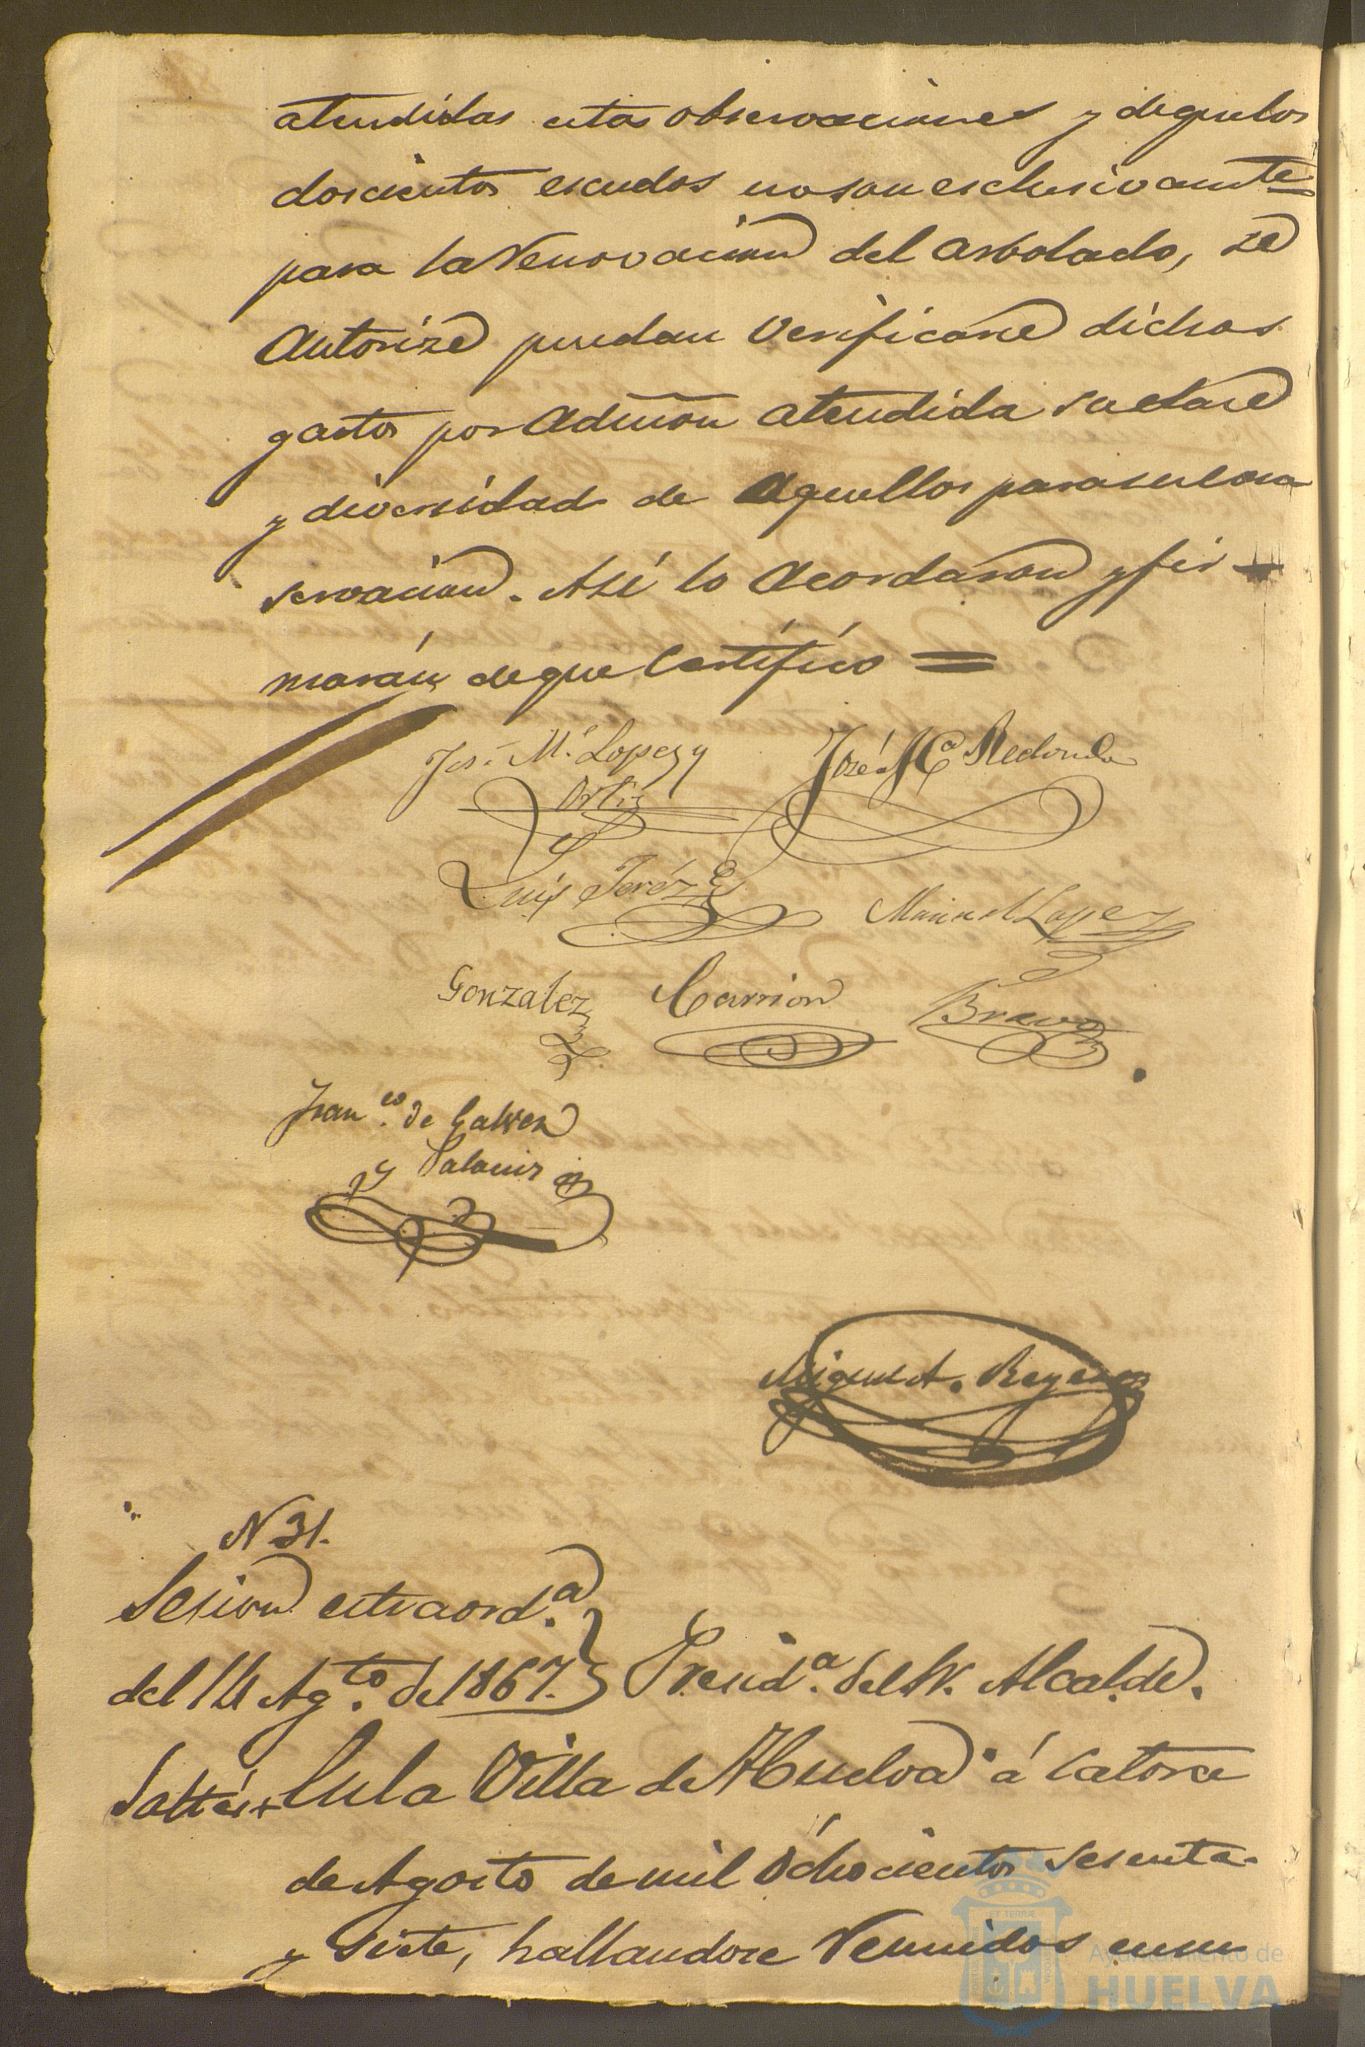 atendidas estas observaciones y de que los
doscientos escudos no son esclusivamte
para la renovacion del arbolado, se
Autorize puedan Verificarse dichos
gastos por Admon atendida su clase
y diversidad de Aquellos para su con
servacion. Así lo Acordaron y fir
marán de que Certifico =
José M.ª Lopez y Ortiz
José M.ª Redondo
Luis Jeréz
Manuel Lopez
Gonzalez
Carrion
Bravo
Fran.co de Galvez
y Palacios
Miguel A. Reyes
N 31.
Sesion estraord.a
del 14 Ag.to de 1867.
Presid.a del Sr. Alcalde.
En la Villa de Huelva á catorce
de Agosto de mil ochocientos sesenta
y siete, hallandose reunidos en su
Ayuntamiento de
HUELVA